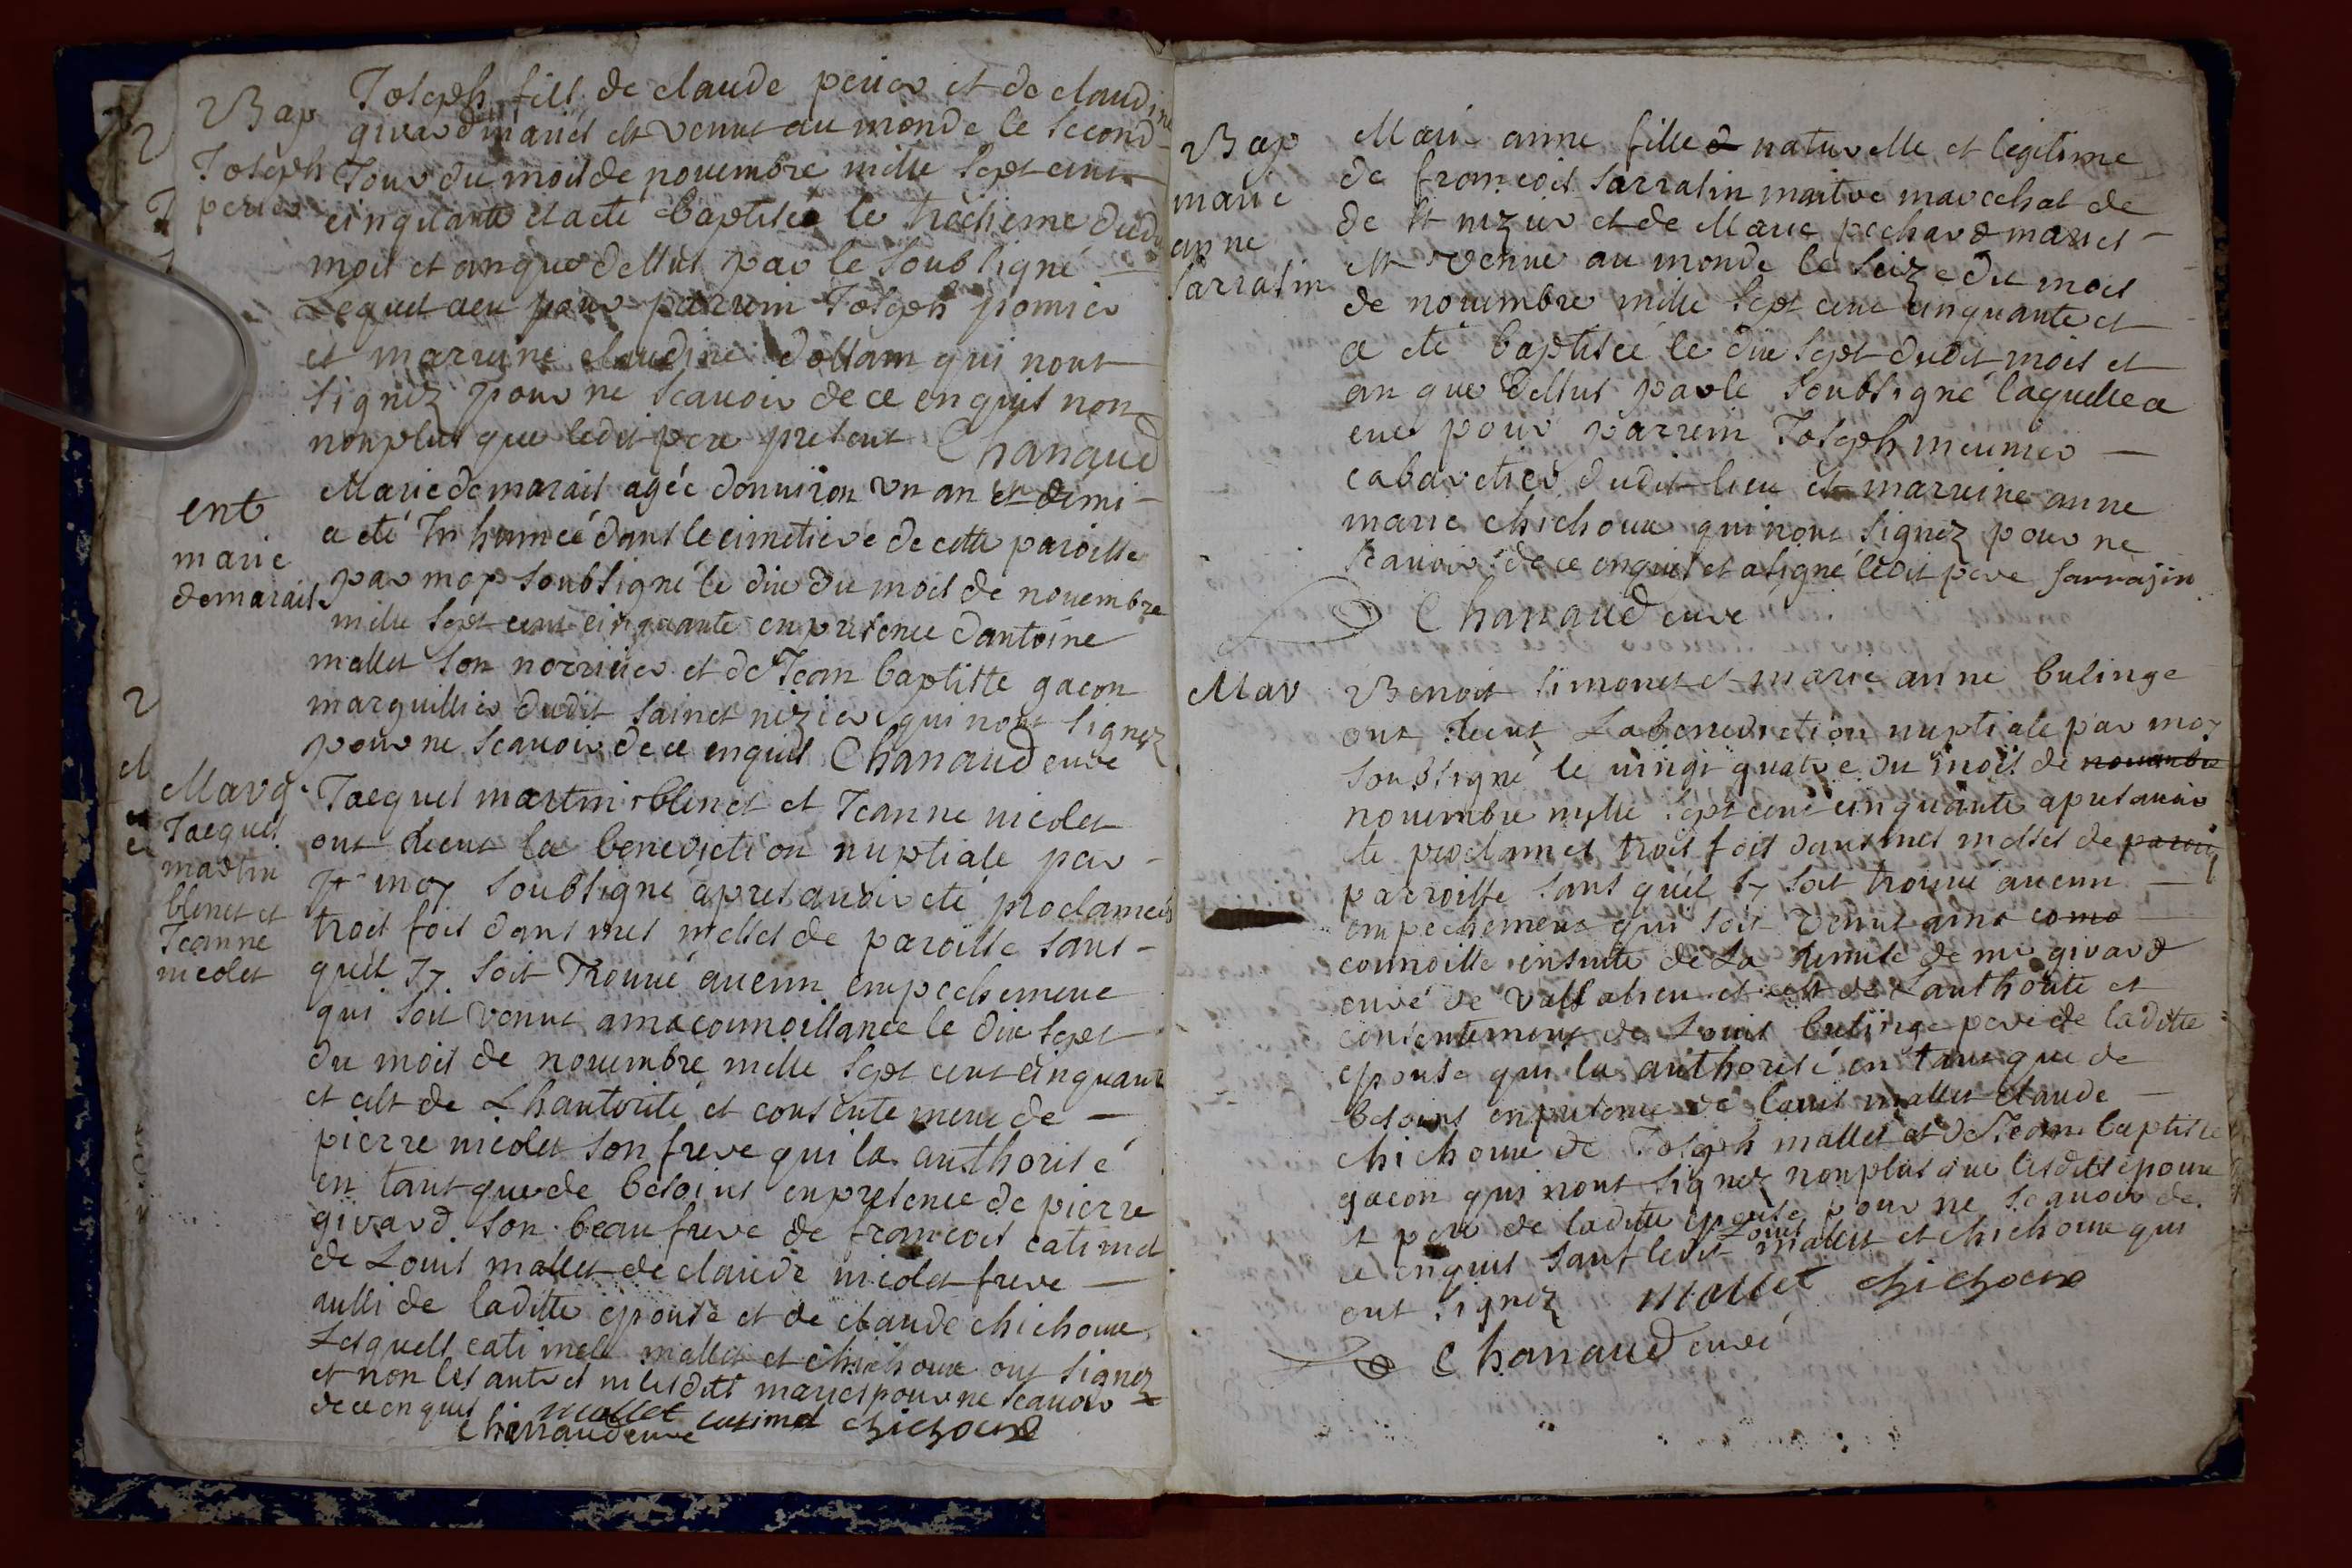 Bap
Joseph
perier
Joseph fils de claude perier et de claudine
girard mariés est venut au monde le second
Jour du mois de novembre mille sept cent
cinquante et a eté baptisée le treisieme dud
mois et an que dessus par le soubsigné
Lequel a eu pour parrein Joseph pomier
et marreine claudine dossam qui nont
signéz pour ne scavoir de ce enquis non
non plus que ledit pere present Chanaud
ent
marie
demarais
Marie demarais agée denviron un an et demi
a eté Inhumeé dans le cimetiere de cette paroisse
par moy soubsigné le dix du mois de novembre
mille sept cent cinquante en presence dantoine
mallet son norricier et de Jean baptiste gacon
marguillier dudit sainct nizier qui nont signéz
pour ne scavoir de ce enquis Chanaud curé
Marg
Jacques
martin
blinet et
Jeanne
nicolet
Jacques martin blinet et Jeanne nicolet
ont recut la benediction nuptiale par
moy soubsigné apres avoir eté proclameés
trois fois dans mes messes de paroisse sans
quil sy soit Trouvé aucun empechement
qui soit venut a ma connoissance le dix sept
du mois de novembre mille sept cent cinquant
et cest de Lhautorité et consentement de
pierre nicolet son frere qui la authorisé
en tant que de besoins en presence de pierre
girard son beau frere de francois catimel
de Louis mallet de claude nicolet frere
aussi de laditte epouse et de claude chichoux
Lesquels catimel mallet et chichoux ont signez
et non les autres ni lesdits mariés pour ne scavoir
de ce enquis mallet catimel chichoux
Chanaud curé
Bap
marie
anne
sarrasin
Marie anne fille naturelle et legitime
de francois sarrasin maitre marechal de
de st nizier et de Marie pechard mariés
est venue au monde le seize du mois
de novembre mille sept cent cinquante et
a eté baptiseé le dix sept dudit mois et
an que dessus par le soubsigné laquelle a
eue pour parrein Joseph meunier
cabaretier dudit lieu et marreine anne
marie chichoux qui nont signéz pour ne
scavoir de ce enquis et a signé ledit pere sarrasin
Chanaud curé
Mar
Benoit simonet et marie anne bulinge
ont recut La benediction nuptiale par moy
soubsigné le vingt quatre du mois de novembre
novembre mille sept cent cinquante apres avoir
eté proclamés trois fois dans mes messes de paroiss
parroisse sans quil sy soit trouvé aucun
empechement qui soit venut a ma cono
connoisse ensuite de La remise de mr girard
curé de valsalieu et cest de Lauthorité et
consentement de Louis bulinge pere de laditte
epouse qui la authorisé en tant que de
besoins en presence de Louis mallet claude
chichoux de Joseph mallet et de Jean baptiste
gacon qui nont signéz non plus que lesdits epoux
et pere de laditte epouse pour ne scavoir de
ce enquis sauf ledit Louis mallet et chichoux qui
ont signéz mallet chichoux
Chanaud curé